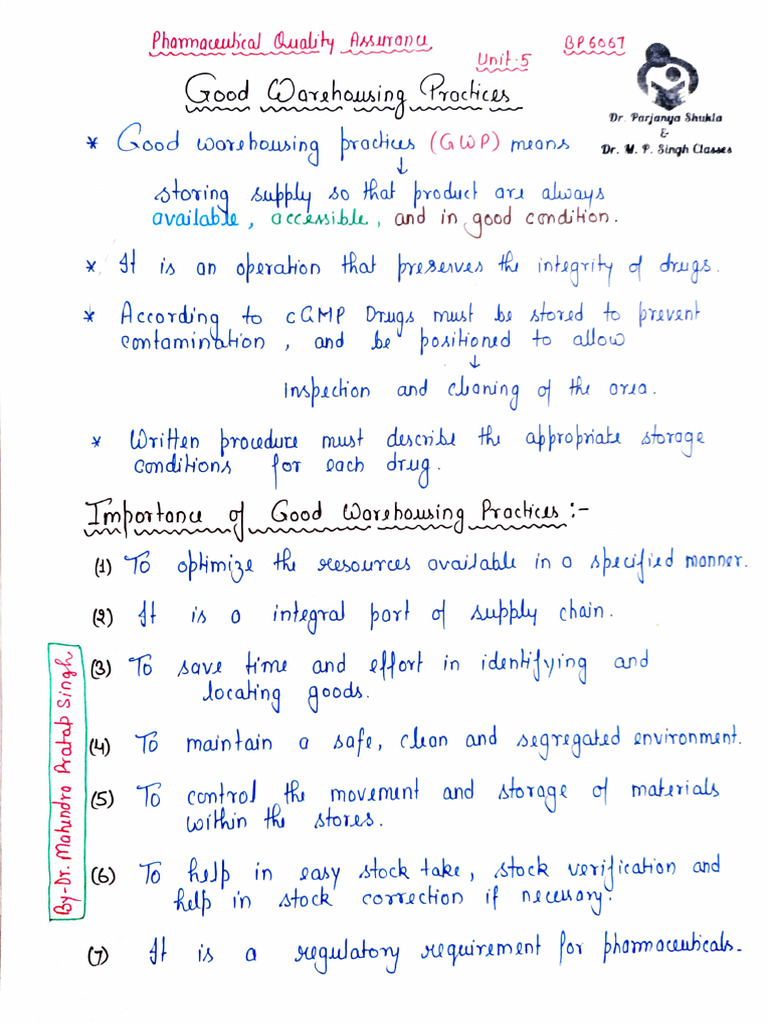 Pharmaceutical Quality Assurance
BP606T
Unit-5
Dr. Parjanya Shukla
&
Dr. M. P. Singh Classes
Good Warehousing Practices
* Good warehousing practices (GWP) means
↓
storing supply so that product are always
available, accessible, and in good condition.
* It is an operation that preserves the integrity of drugs.
* According to cGMP Drugs must be stored to prevent
contamination, and be positioned to allow
↓
inspection and cleaning of the area.
* Written procedure must describe the appropriate storage
conditions for each drug.
Importance of Good Warehousing Practices :-
(1) To optimize the resources available in a specified manner.
(2) It is a integral part of supply chain.
(3) To save time and effort in identifying and
locating goods.
(4) To maintain a safe, clean and segregated environment.
(5) To control the movement and storage of materials
within the stores.
(6) To help in easy stock take, stock verification and
help in stock correction if necessary.
(7) It is a regulatory requirement for pharmaceuticals.
By-Dr. Mahendra Pratap Singh